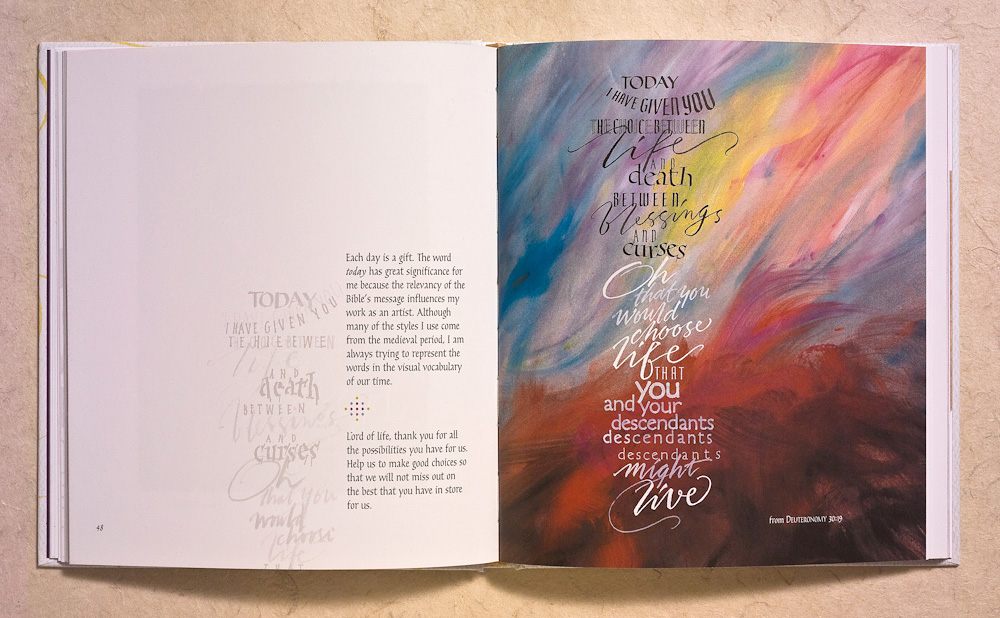 Each day is a gift. The word
today has great significance for
me because the relevancy of the
Bible's message influences my
work as an artist. Although
many of the styles I use come
from the medieval period, I am
always trying to represent the
words in the visual vocabulary
of our time.
Lord of life, thank you for all
the possibilities you have for us.
Help us to make good choices so
that we will not miss out on
the best that you have in store
for us.
TODAY
I HAVE GIVEN YOU
THE CHOICE BETWEEN
life
AND
death
BETWEEN
blessings
AND
curses
Oh
that you
would
choose
life
THAT
48
TODAY
I HAVE GIVEN YOU
THE CHOICE BETWEEN
life
AND
death
BETWEEN
Blessings
AND
curses
Oh
that you
would
choose
life
THAT
you
and your
descendants
descendants
descendants
might
live
from DEUTERONOMY 30:19